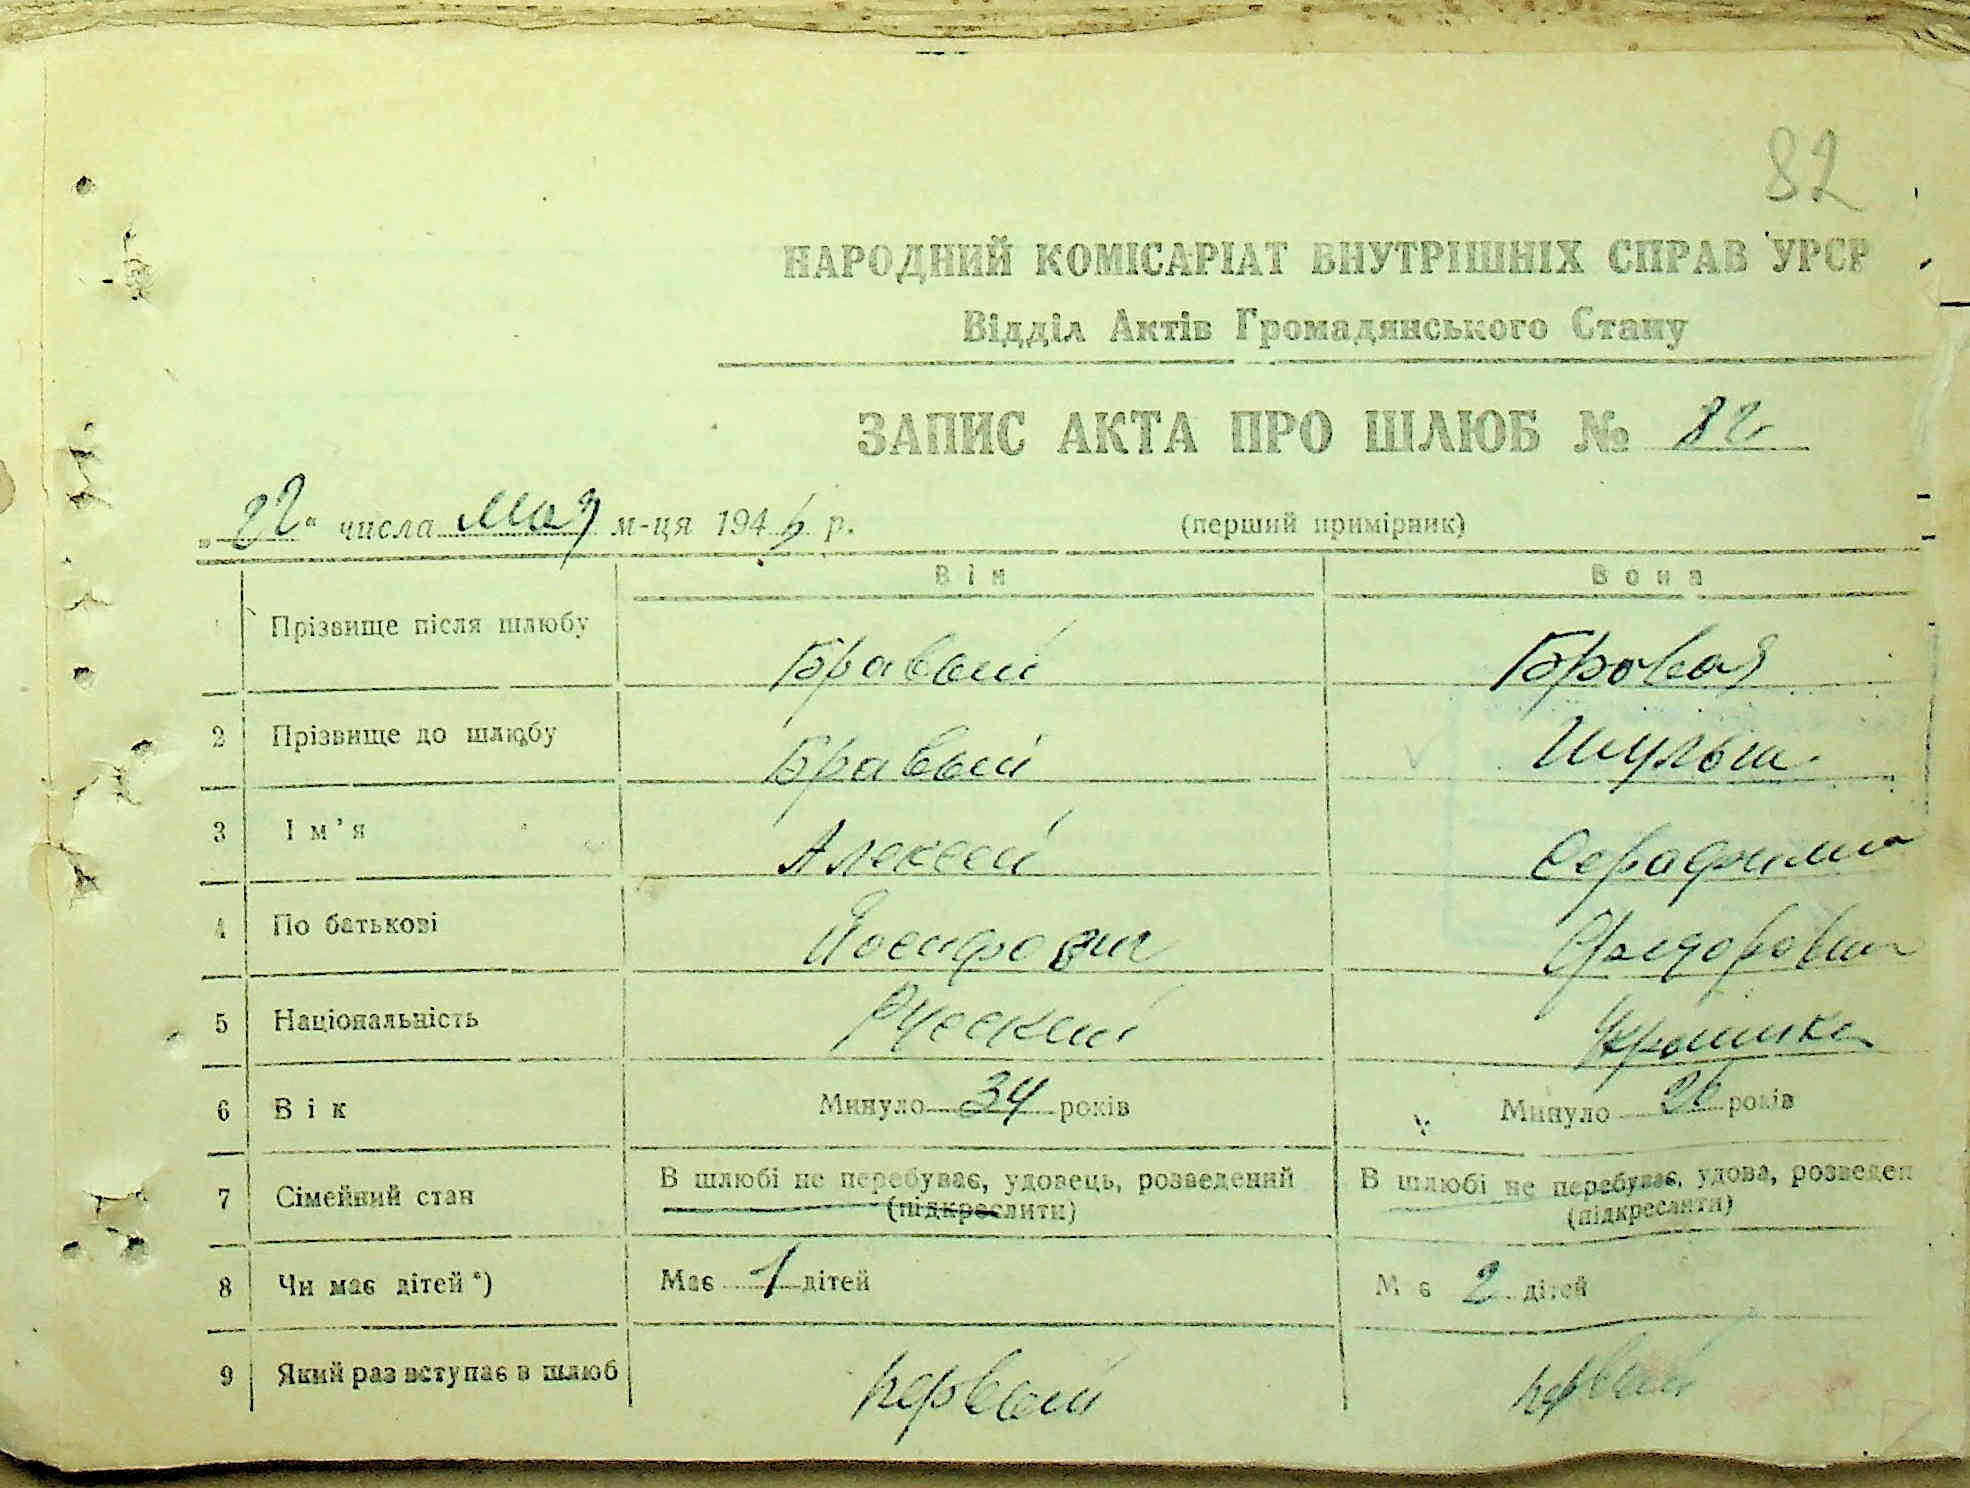 82
НАРОДНИЙ КОМІСАРІАТ ВНУТРІШНІХ СПРАВ УРСР
Відділ Актів Громадянського Стану
ЗАПИС АКТА ПРО ШЛЮБ № 82
„22" числа мая м-ця 194 р.
(перший примірник)
Він Вона
Прізвище після шлюбу Бравый Бровая
2 Прізвище до шлюбу Бравый
3 Ім'я Алексей Серафима
4 По батькові Йосифович
5 Національність Русский
6 Вік Минуло 34 років Минуло 26 років
7 Сімейний стан В шлюбі не перебуває, удовець, розведений В шлюбі не перебуває, удова, розведен
(підкреслити) (підкреслити)
8 Чи має дітей*) Має 1 дітей М є 2 дітей
9 Який раз вступає в шлюб первый первый